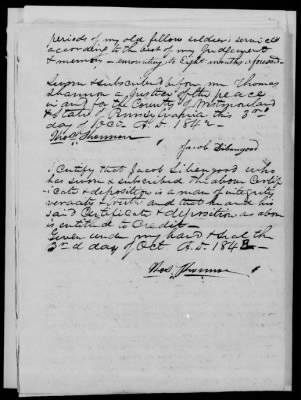 periods of my old fellow soldiers services
according to the best of my Judgement
& memory — amounting to Eight months aforesaid.
Sworn & subscribed before me Thomas
Shannon a Justice of the peace
in and for the County of Westmoreland
& State of Pennsylvania this 3rd
day of Oct A.D. 1842 —
Thos Shannon
Jacob
I Certify that Jacob who
has sworn & subscribed the above Certif
icate & deposition is a man of integrity
veracity & truth and that he and his
said Certificate & deposition as above
is entitled to Credit —
Given under my hand & seal the
3rd day of Oct A.D. 1842 —
Thos Shannon